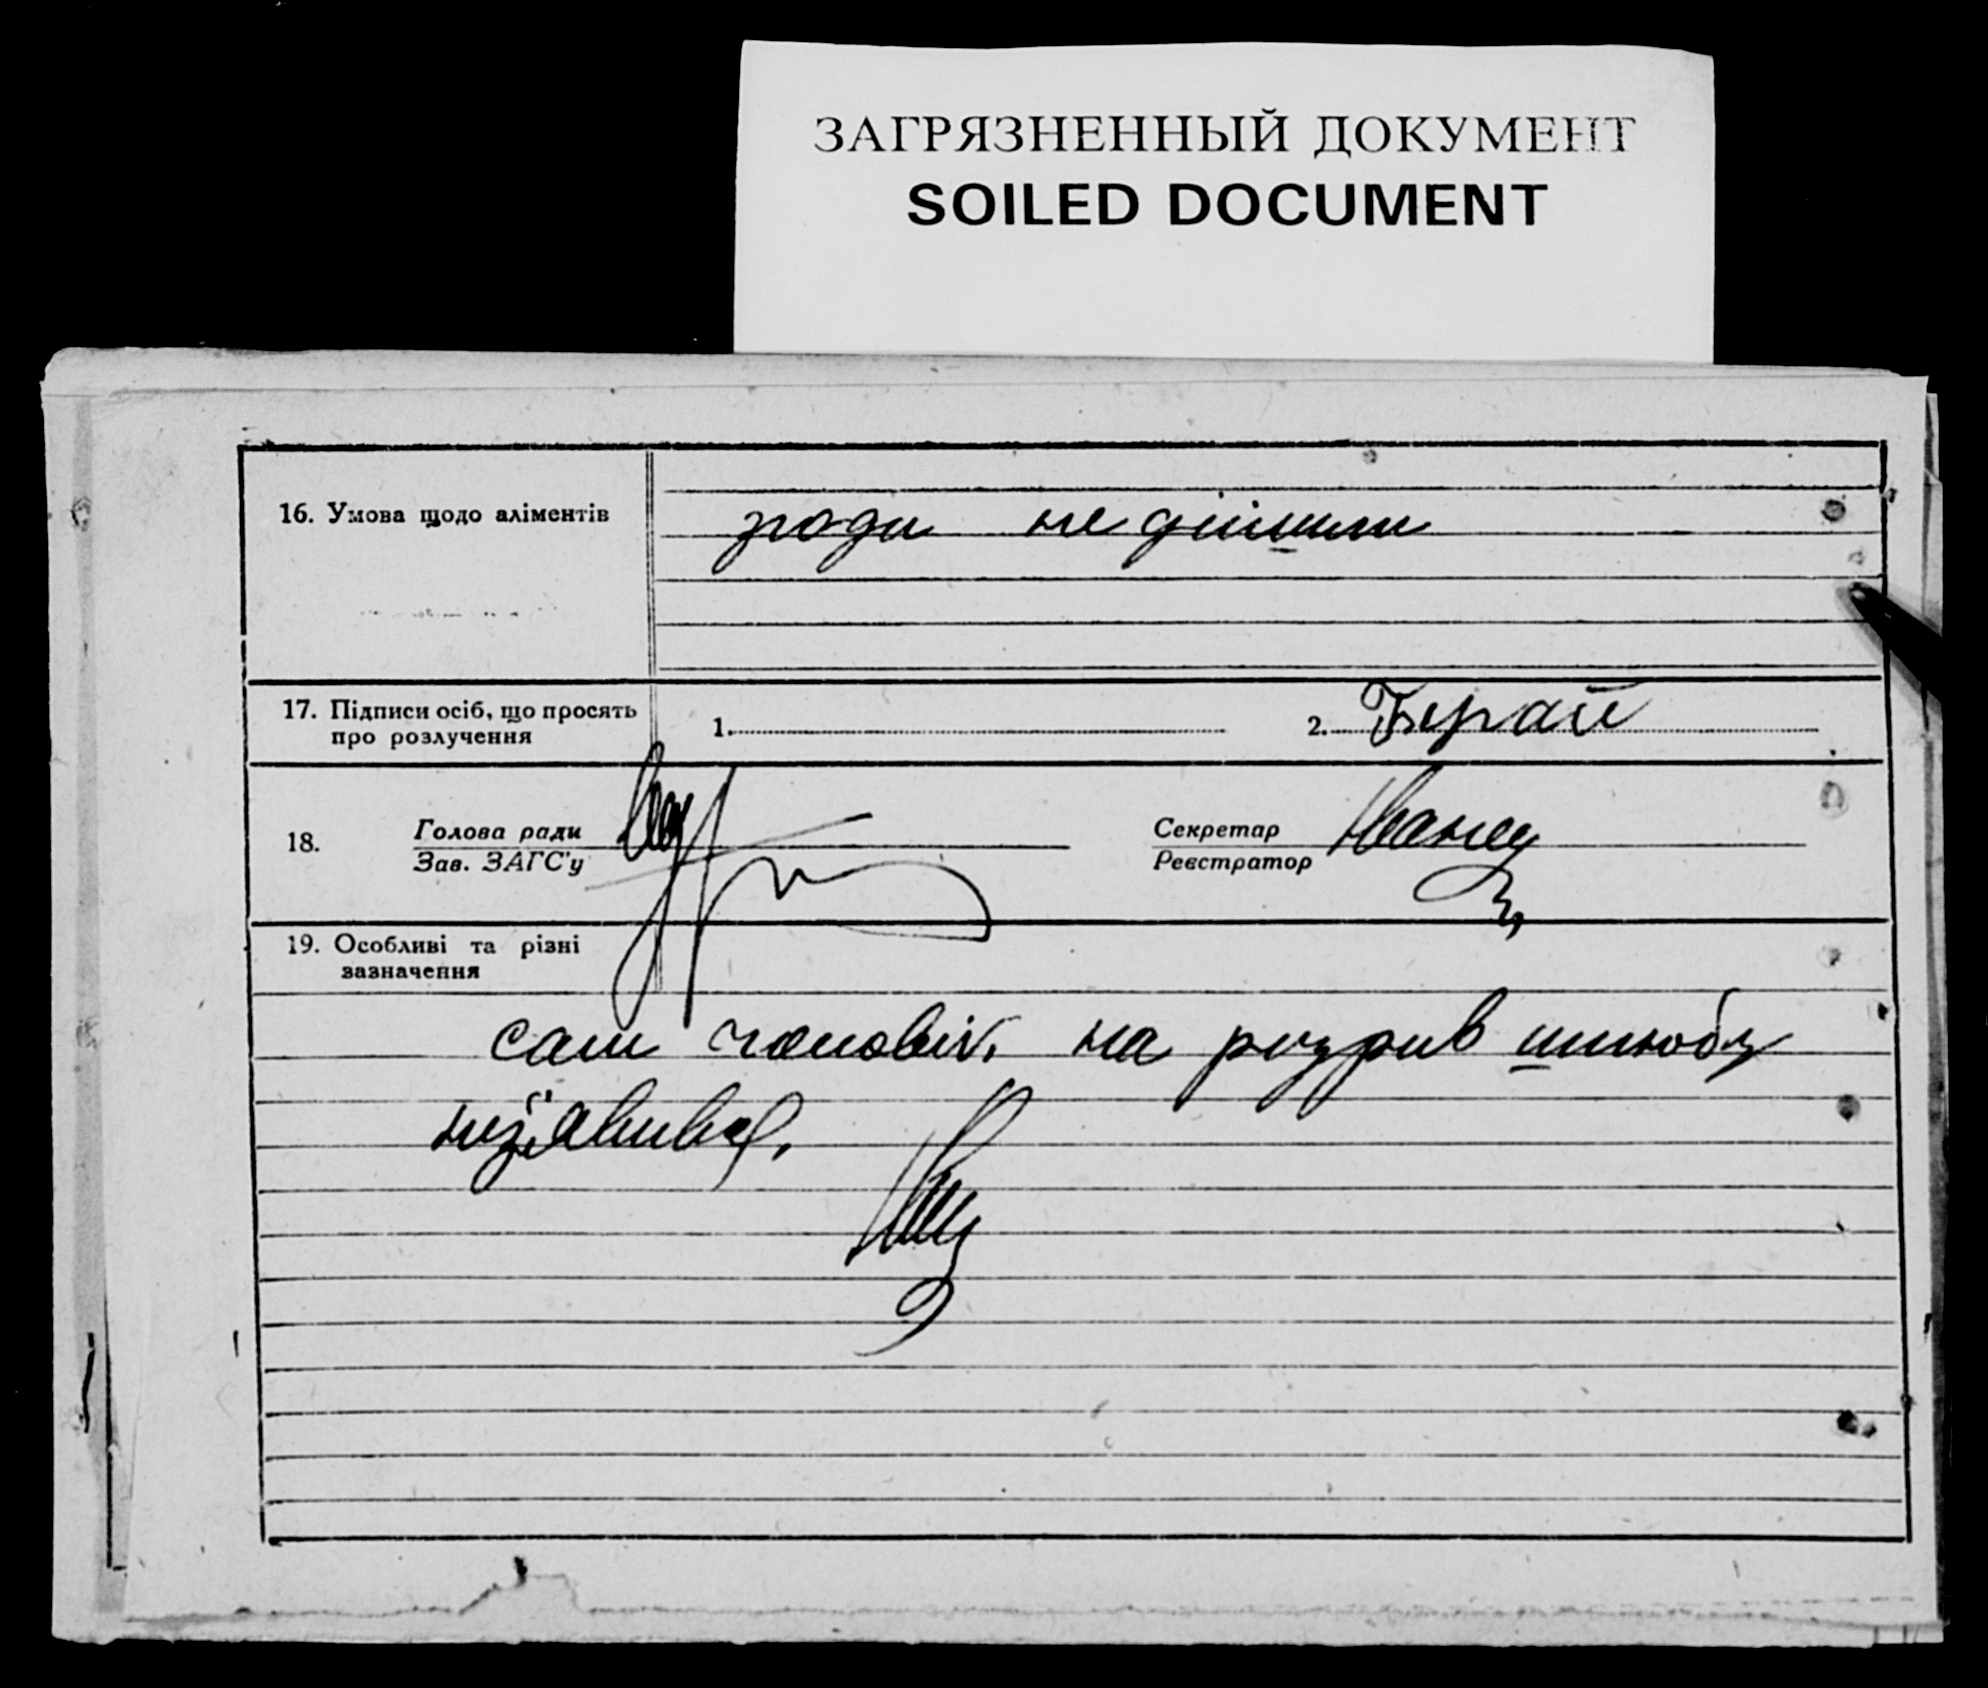 ЗАГРЯЗНЕННЫЙ ДОКУМЕНТ
SOILED DOCUMENT
16. Умова щодо аліментів
згоди не дійшли
17. Підписи осіб, що просять
про розлучення
1. 2. Бугай
18. Голова ради Секретар
Зав. ЗАГС'у Реєстратор
19. Особливі та різні
зазначення
сам чоловік на розрив шлюбу